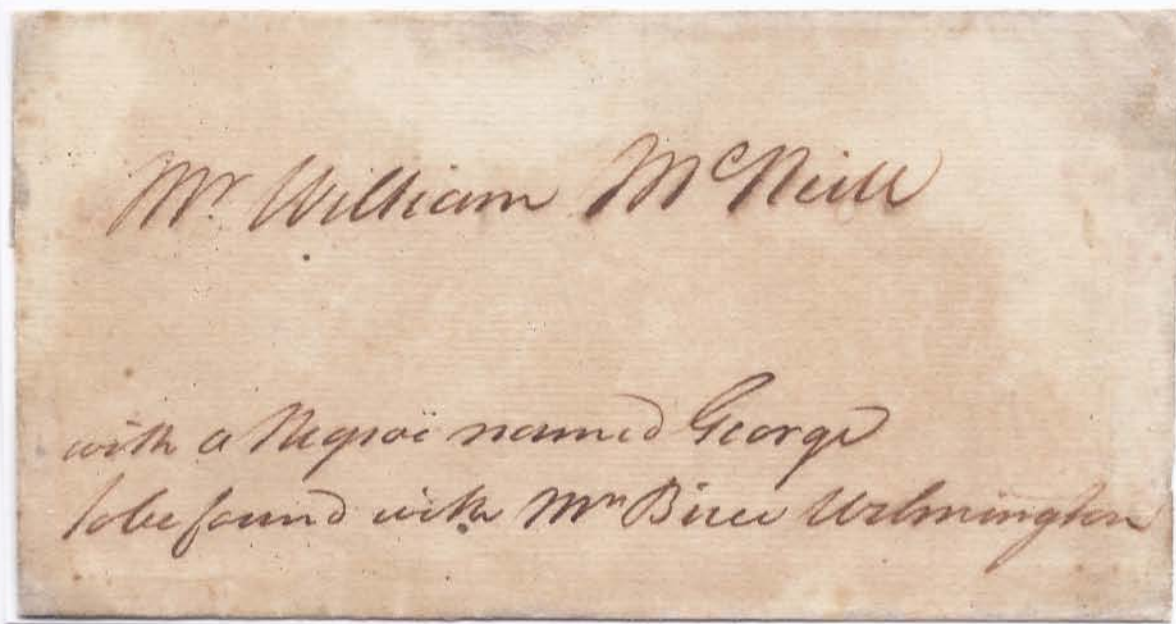 Mr. William McNeill
with a Negroe named George
to be found with Mrs Wilmington